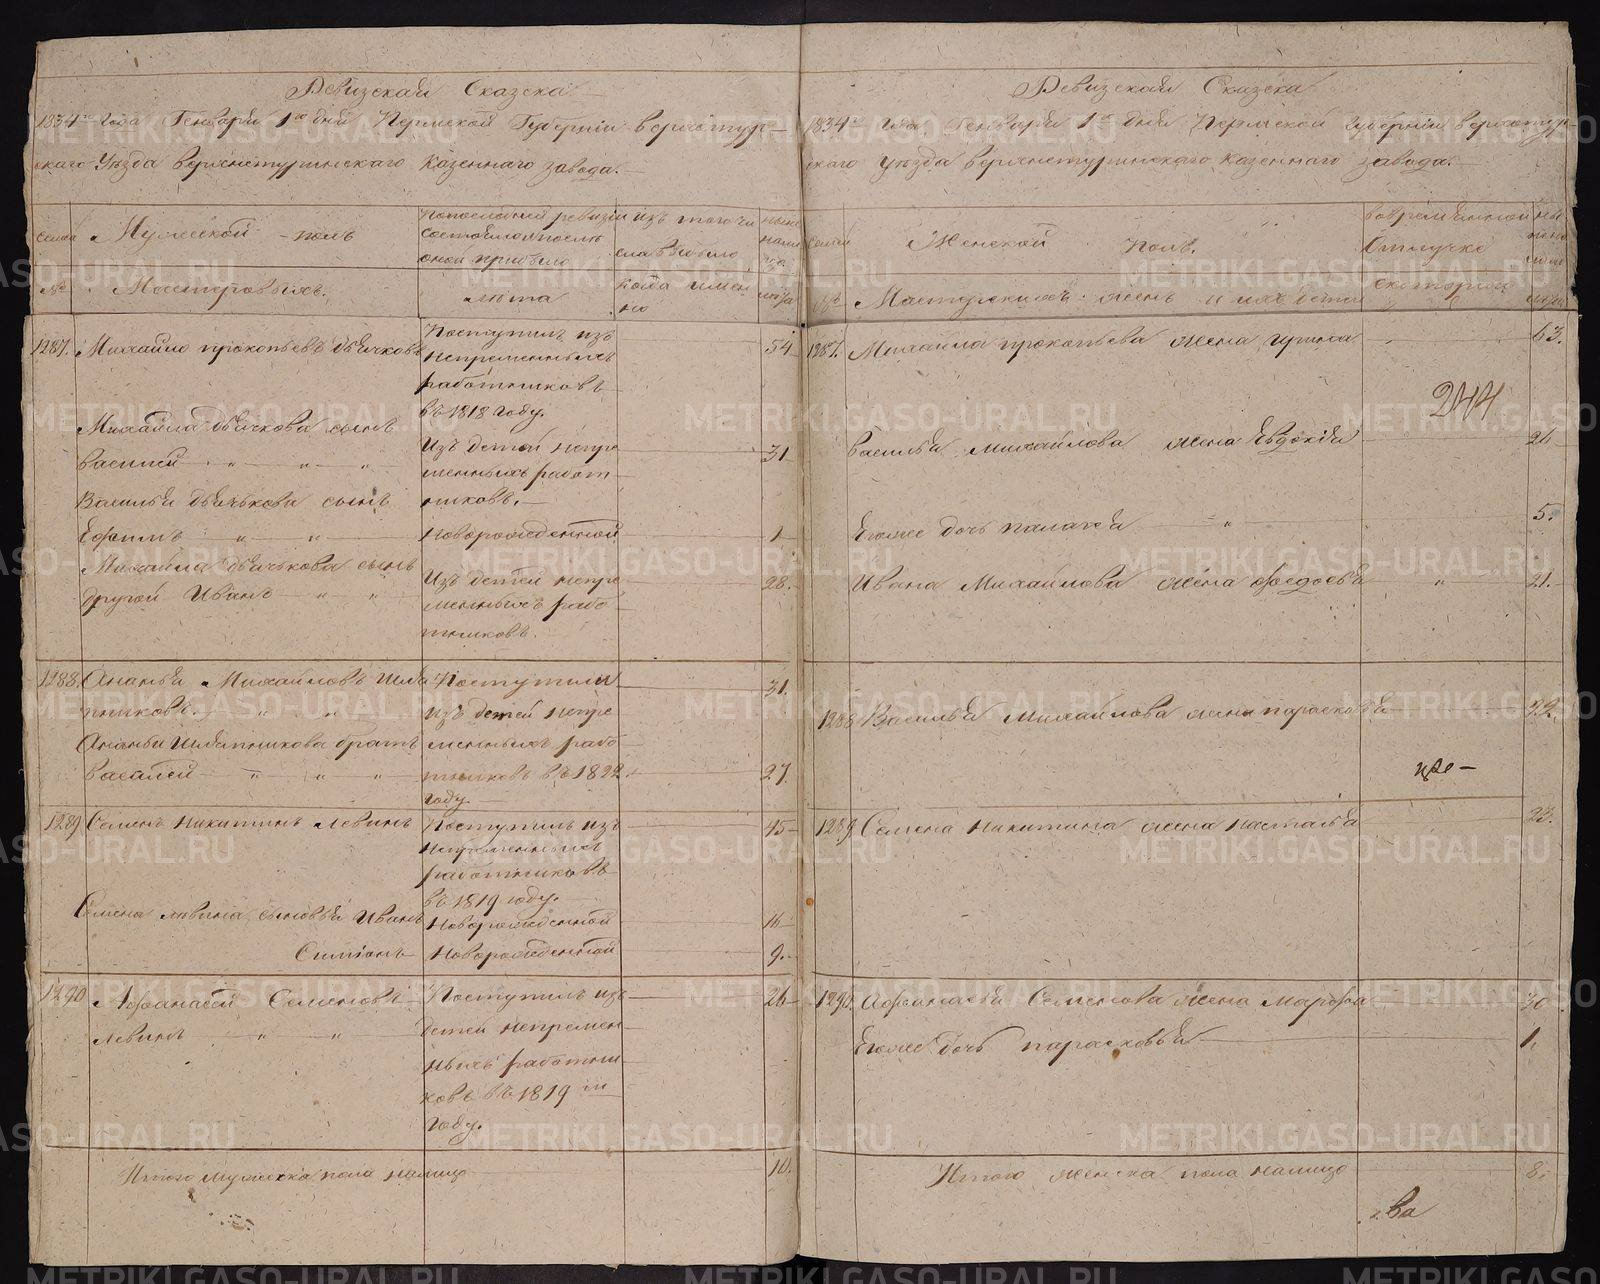 Ревизская Сказка
1834го года Генваря 1го дня Пермской Губернии Верхотур-
скаго уезда Верхнетуринскаго казеннаго завода.
семьи
Мужеской полъ
По последней ревизии
состояло и после
оной прибыло
изъ того чи
сла выбыло
ныне
нали
цо
№
Мастеровыхъ.
лета
когда имен
но
лета
1287. Михайло Прокопьевъ Дьячковъ
Поступилъ изъ
непременныхъ
работниковъ
въ 1818 году.
54
Михайла Дьячкова сынъ
Василей " " "
Изъ детей непре
менныхъ работ
никовъ.
31
Василья Дьячькова сынъ
Ефимъ " "
Новорожденной
1
Михайла Дьячькова сынъ
другой Иванъ " "
Изъ детей непре
менныхъ рабо
тниковъ.
28.
1288. Ананья Михайловъ Шля
пниковъ. " "
Поступили
изъ детей непре
31.
Ананьи Шляпникова братъ
Василей " " "
менныхъ рабо
тниковъ въ 1822
году.
27
1289 Семенъ Никитинъ Левинъ
Поступилъ изъ
непременныхъ
работниковъ
въ 1819 году.
45
Семена Левина сыновья Иванъ
Новорожденной
16
Симионъ
Новорожденной
9.
1290 Афанасей Семеновъ
Левинъ " "
Поступилъ изъ
детей непремен
ныхъ работни
ковъ въ 1819 м
году.
26
Итого мужеска пола налицо
10.
Ревизская Сказка
1834го года Генваря 1го дня Пермской Губернии Верхотур-
скаго уезда Верхнетуринскаго казеннаго завода.
семьи
Женской полъ.
во временной
отлучке
ны
не на
лицо
№
Мастерскихъ жень и ихъ дети
с которыхъ
лета
1287. Михайла Прокопьева жена Ирина
63.
244
Василья Михайлова жена Евдокия
26
Егоже дочь Палагея "
5.
Ивана Михайлова жена Федосья "
21.
1288 Василья Михайлова жена Парасковья
22.
1289 Семена Никитина жена Настасья
23.
1290. Афанасья Семенова жена Марфа
30
Егоже дочь Парасковья
1.
Итого женска пола налицо
8.